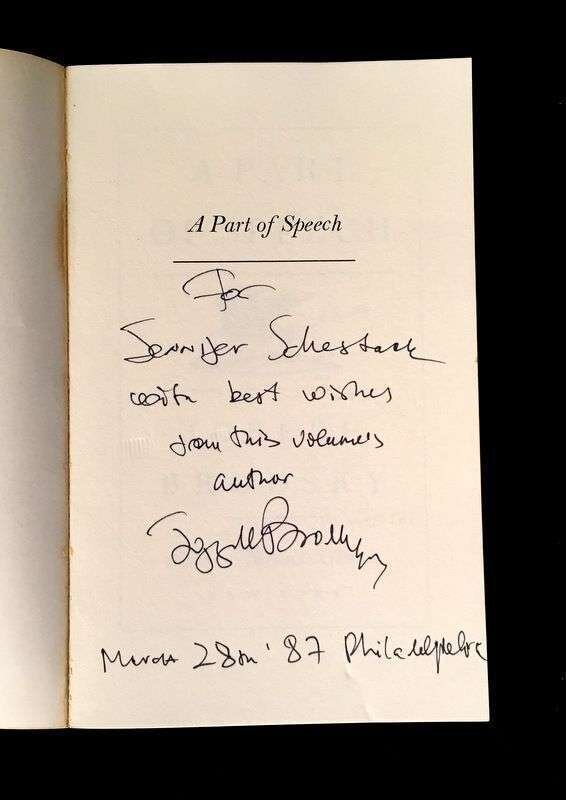 A Part of Speech
For
Jennifer Schestack
with best wishes
from this volume's
author
Joseph Brodsky
March 28th '87 Philadelphia